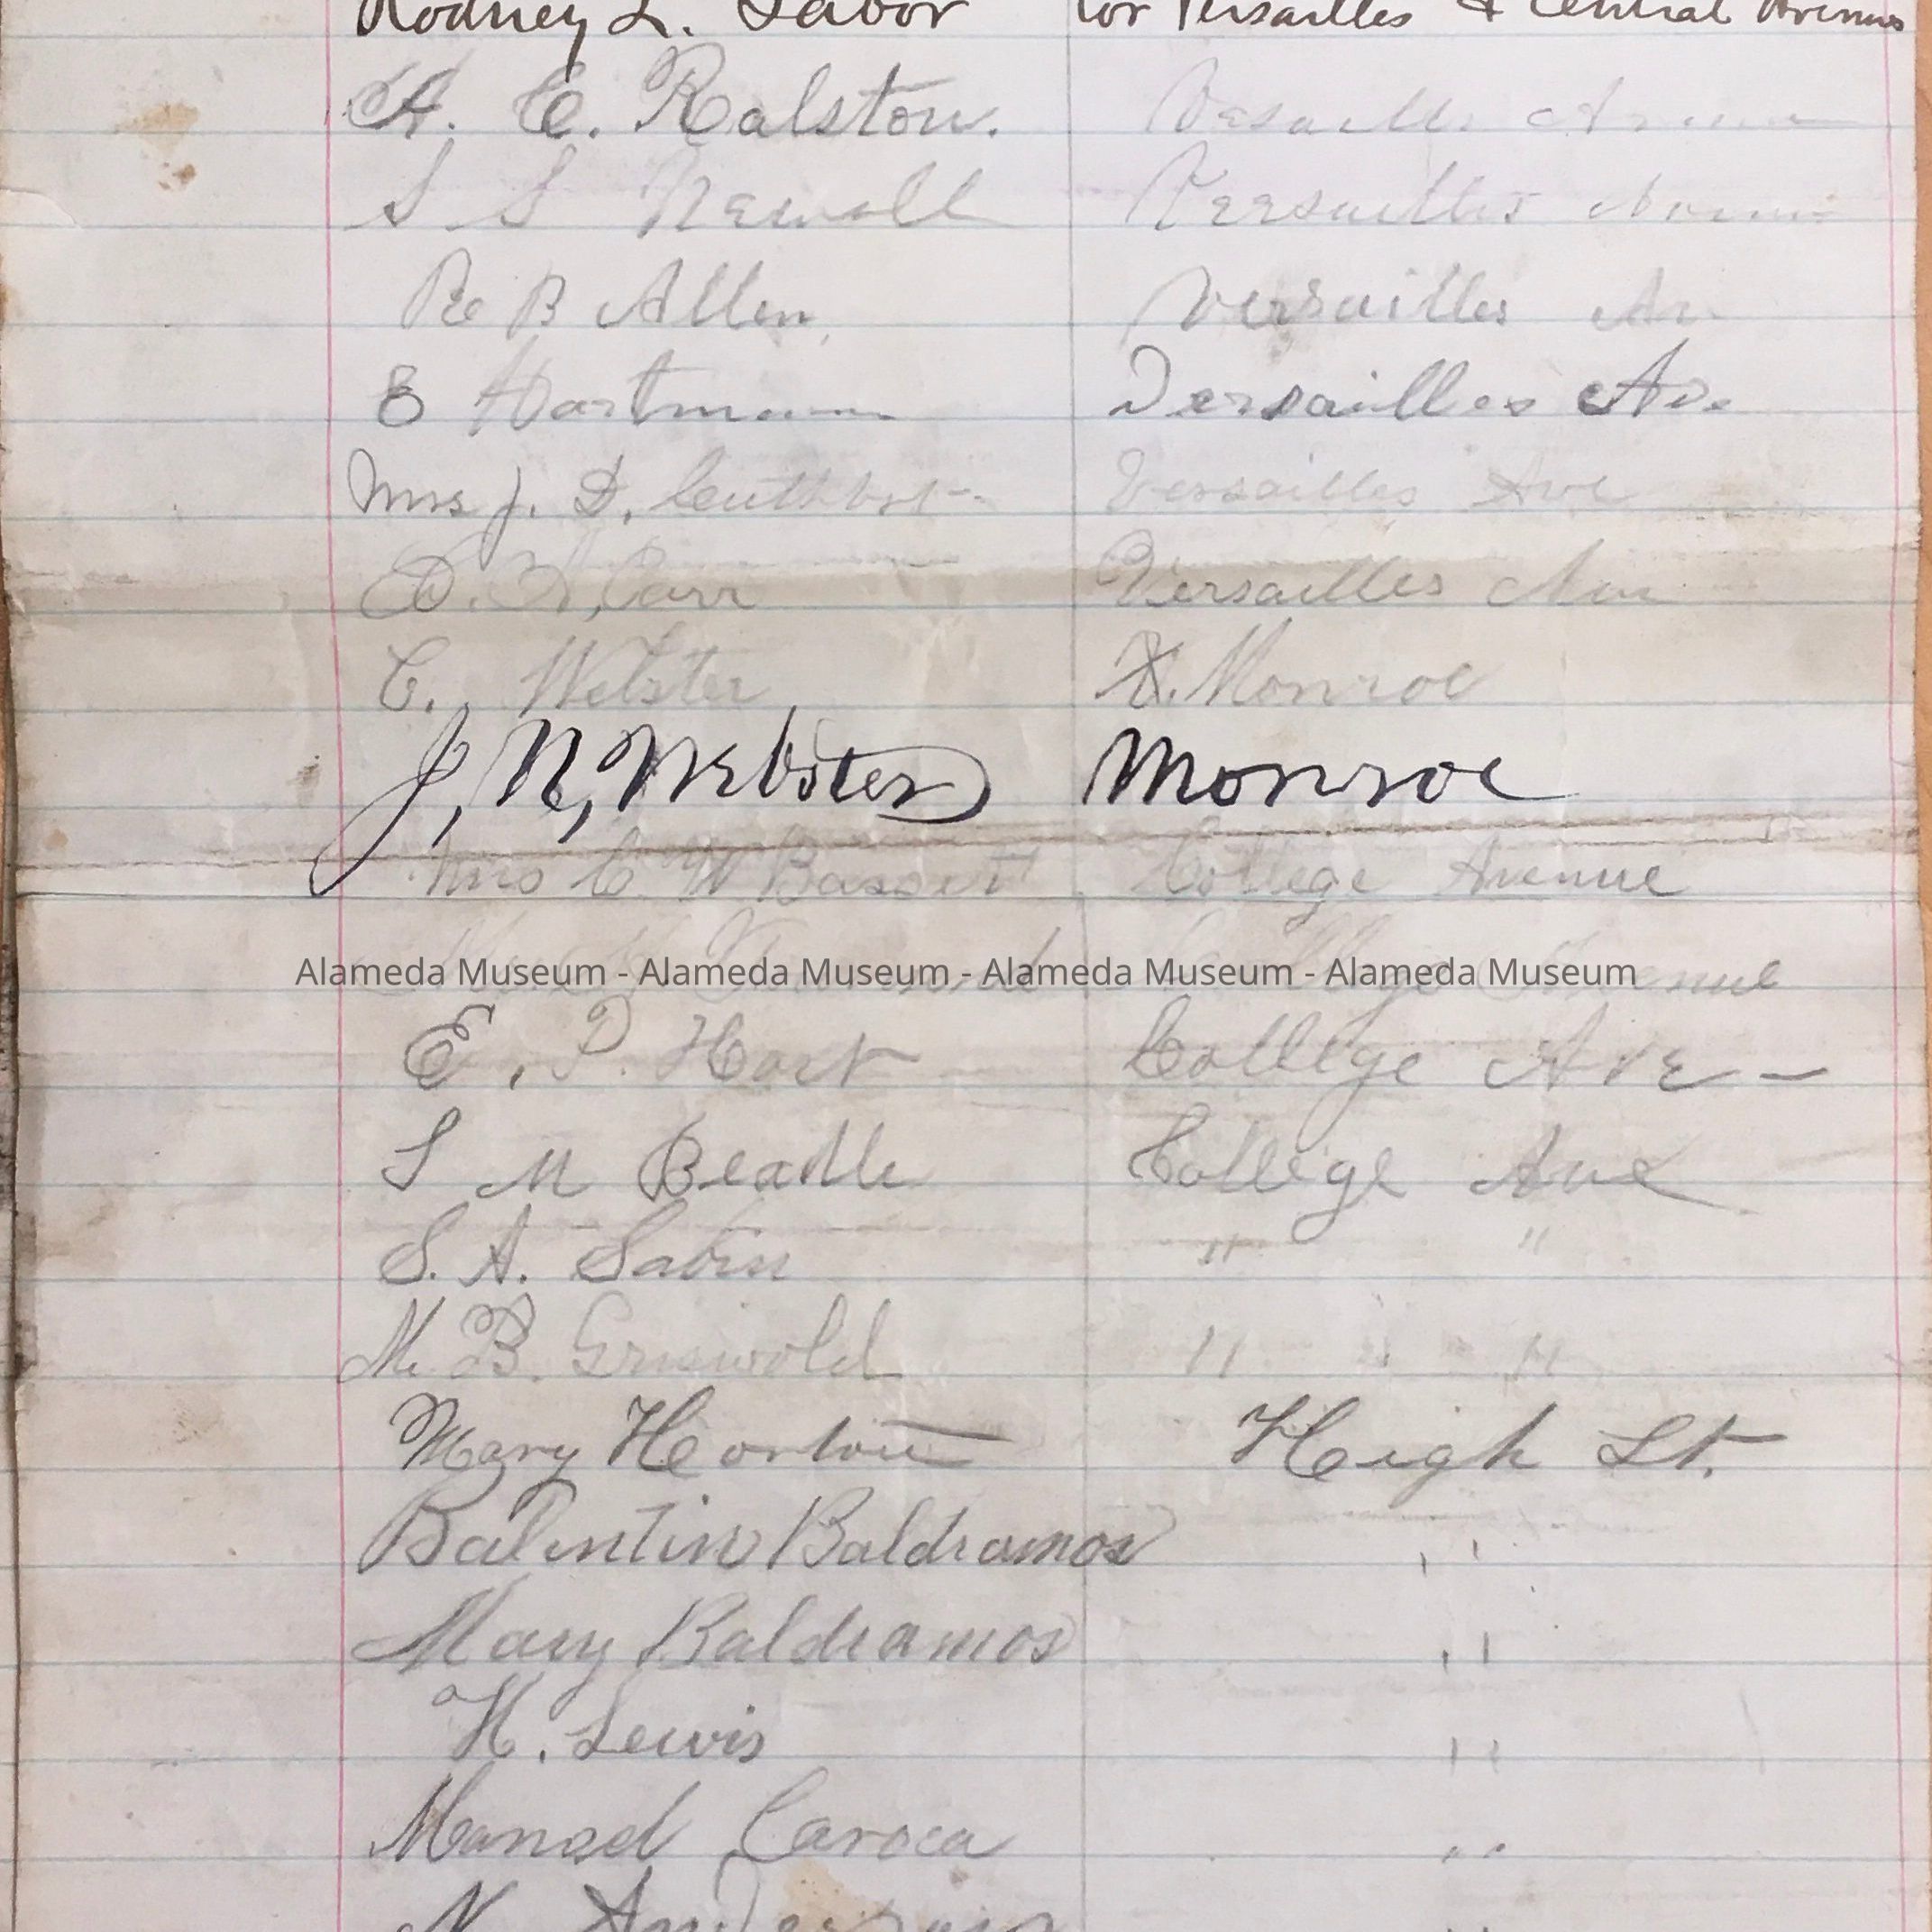 Rodney L. Tabor cor Versailles & Central Avenue
A. C. Ralston. Vesaille Avenue
S S Newell Versailles Avenue
R B Allen Versailles Av
E Hartmann Versailles Av.
Mrs J. D. Versailles Ave
D. Carr Versailles Ave
C. Webster Monroe
J, N, Webster Monroe
Mrs C. W Bassett College Avenue
College Avenue
Alameda Museum - Alameda Museum - Alameda Museum - Alameda Museum
E. P. Hart College Ave -
S M Beadle College Ave
S. A. Sabin " "
M. B. Griswold " "
Mary Horton High St.
Balentin Baldramos "
Mary Baldramos "
H. Lewis "
Manuel Caroca "
N Anderson "